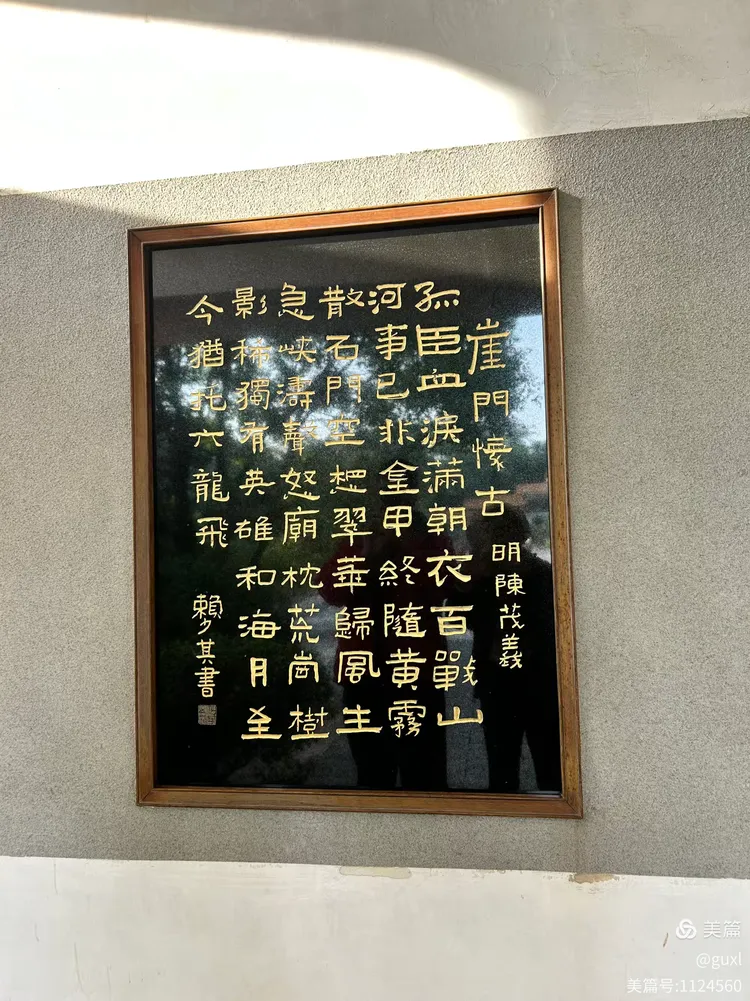 崖門懷古 明陳茂義
孤臣血淚滿朝衣百戰山
河事已非金甲終隨黃霧
散石門空想翠華歸風生
急峽濤聲怒廟枕荒崗樹
影稀獨有英雄和海月至
今猶托六龍飛
賴少其書
美篇
@guxl
美篇号:1124560